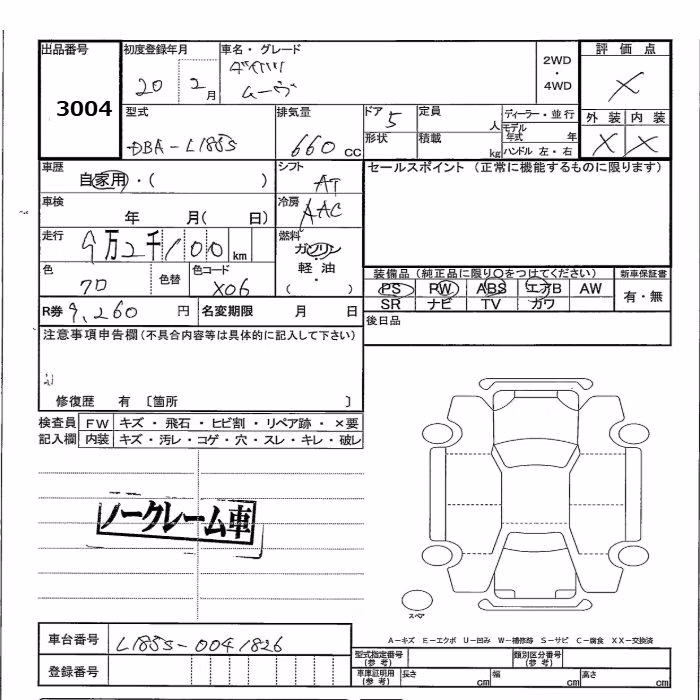 出品番号 初度登録年月 車名・グレード 2WD・4WD 評価点
3004 20 2月 ダイハツ ムーヴ X
型式 排気量 ドア 定員 人 ディーラー・並行 外装 内装
DBA-L185S 660 cc 5 モデル年式 年 X X
形状 積載 kg ハンドル 左・右
車歴 シフト セールスポイント (正常に機能するものに限ります)
自家用・( ) AT
車検 冷房
年 月( 日) AAC
走行 燃料
9万2千100 km ガソリン
軽・油
色 色替 色コード ( )
X06
装備品 (純正品に限り○をつけてください) 新車保証書
PS PW ABS エアB AW 有・無
SR ナビ TV ガワ
R券 9,260 円 名変期限 月 日
後日品
注意事項申告欄(不具合内容等は具体的に記入して下さい)
修復歴 有 〔箇所 〕
検査員 FW キズ・飛石・ヒビ割・リペア跡・×要
記入欄 内装 キズ・汚レ・コゲ・穴・スレ・キレ・破レ
ノークレーム車
スペア
A-キズ E-エクボ U-凹み W-補修跡 S-サビ C-腐食 XX-交換済
車台番号 L185S-0041826
登録番号
型式指定番号(参考) 類別区分番号(参考)
車庫証明用(参考) 長さ cm 幅 cm 高さ cm